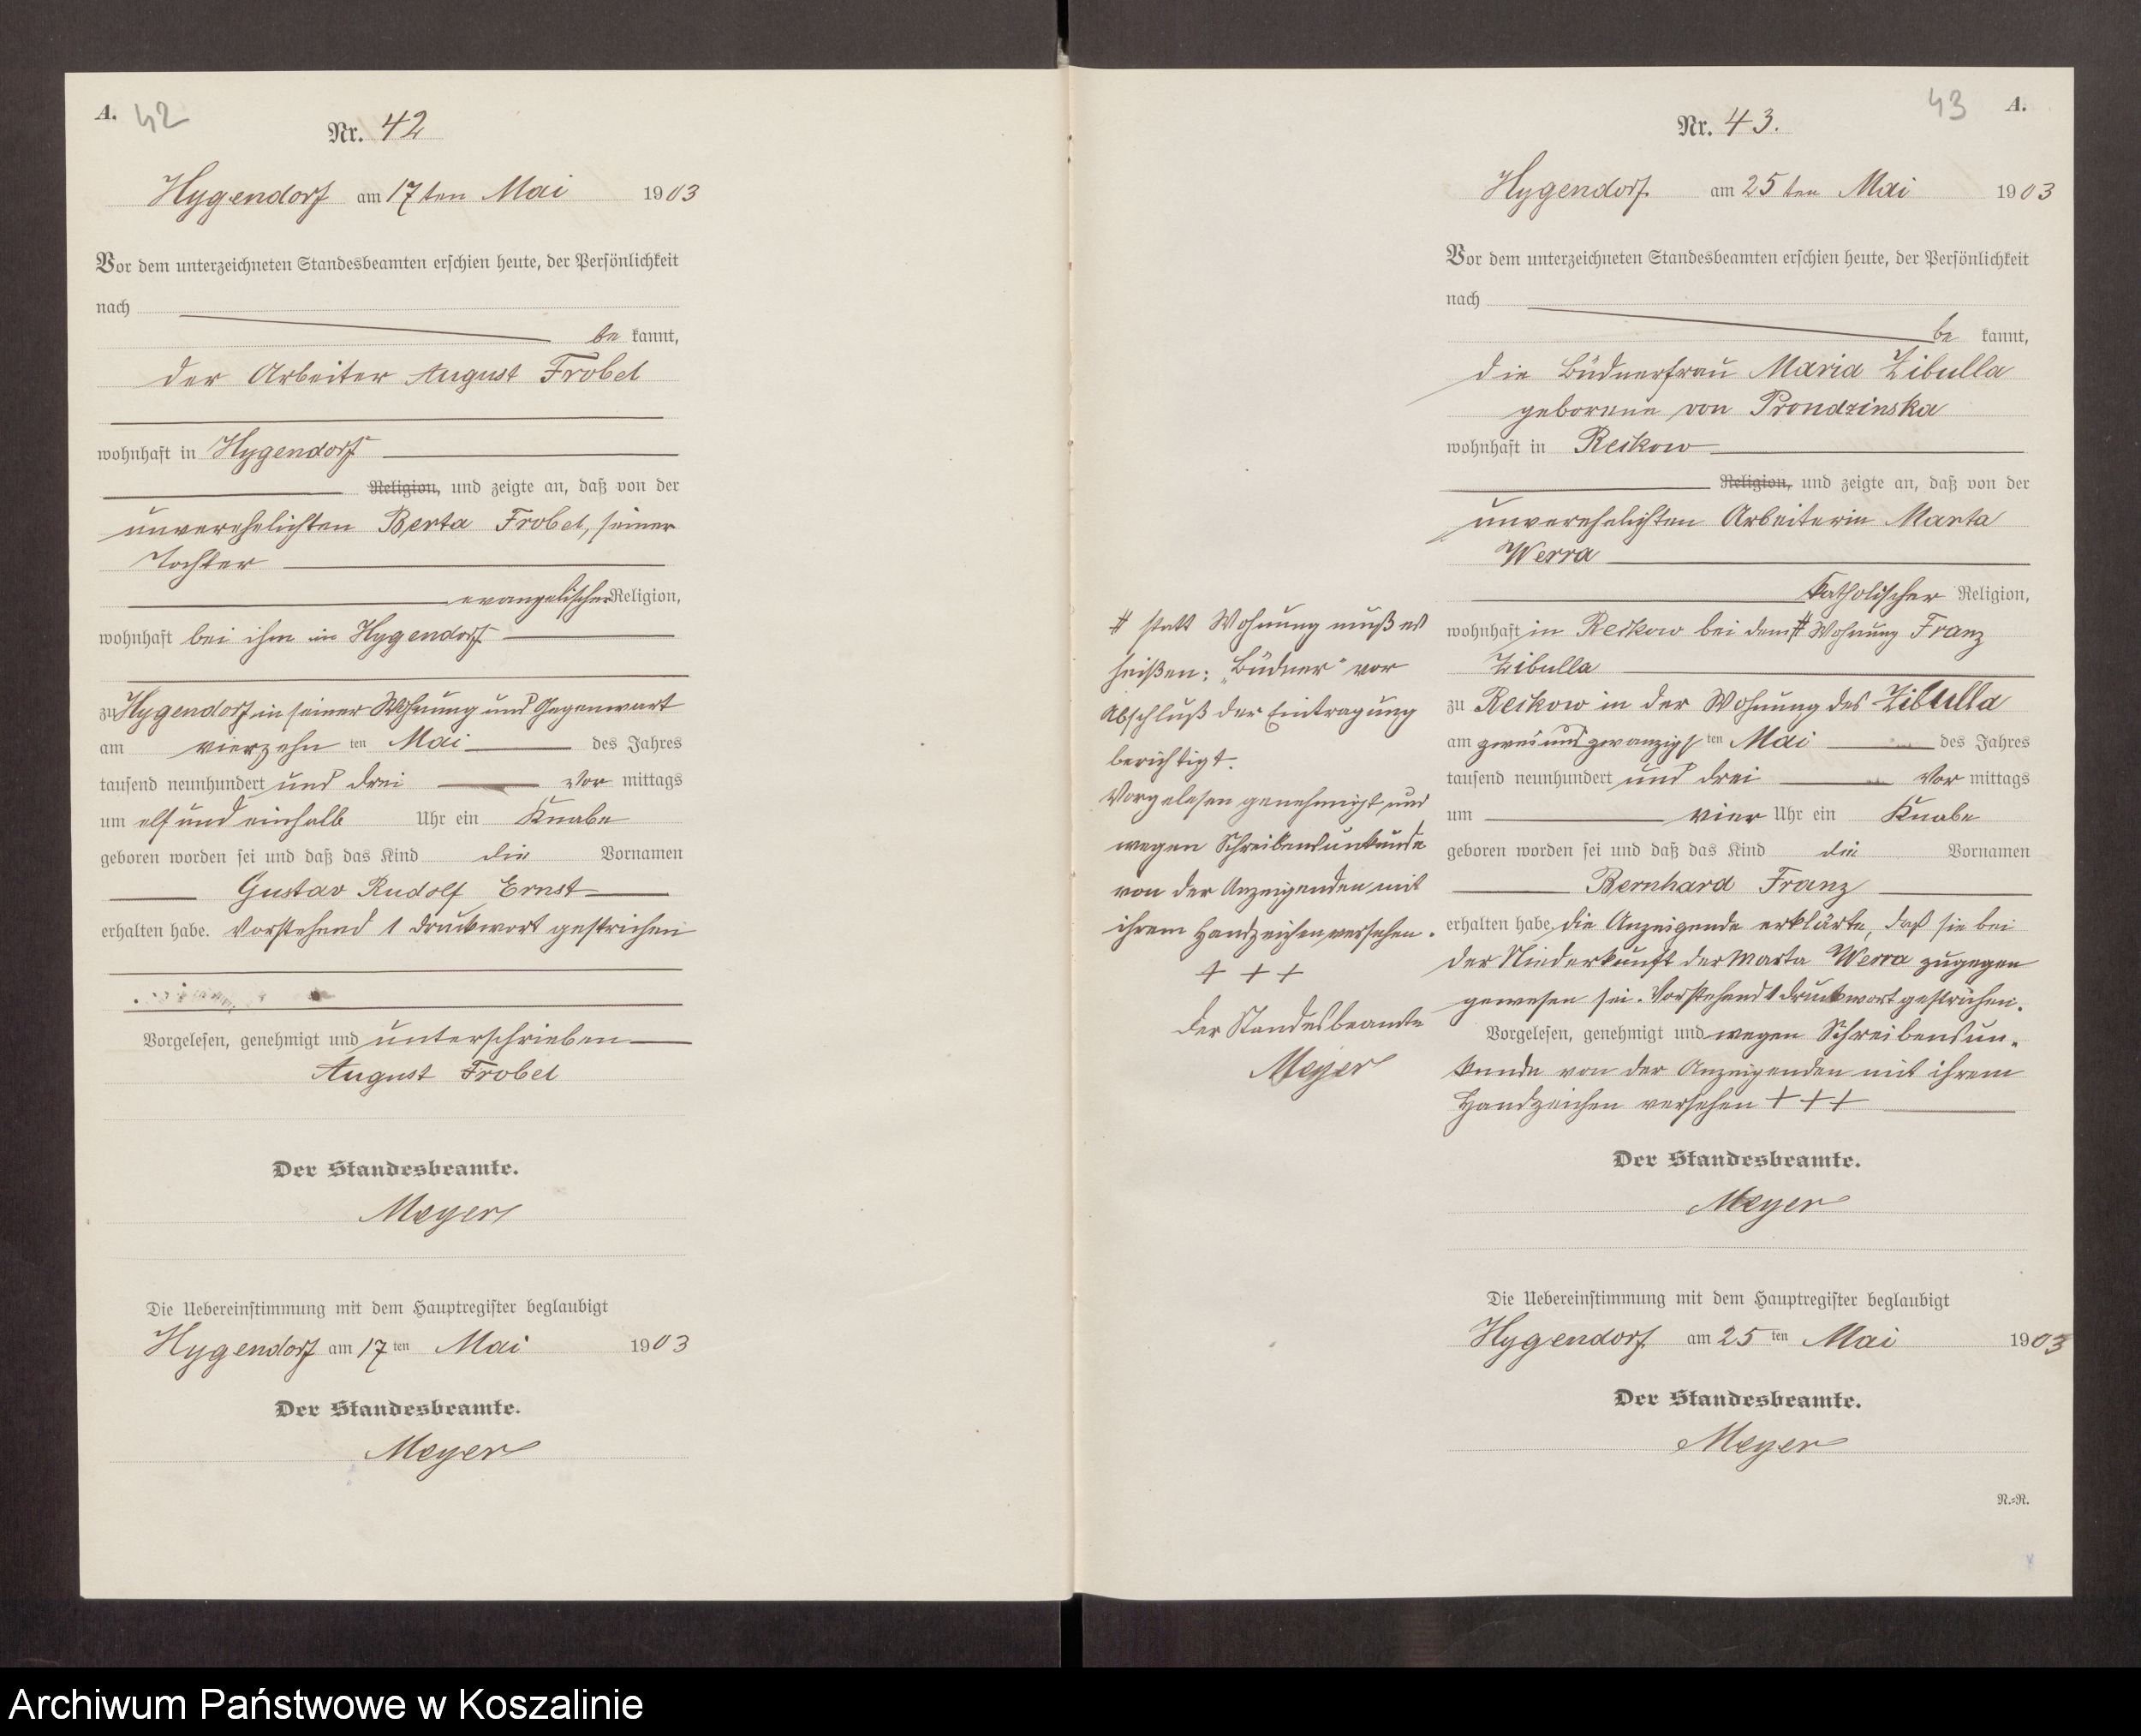 A. 42
Nr. 42
Hygendorf am 17ten Mai 1903
Vor dem unterzeichneten Standesbeamten erschien heute, der Persönlichkeit
nach
be kannt,
der Arbeiter August Frobel
wohnhaft in Hygendorf
Religion, und zeigte an, daß von der
unverehelichten Berta Frobel, seiner
Tochter
evangelischer Religion,
wohnhaft bei ihm in Hygendorf
zu Hygendorf in seiner Wohnung und Gegenwart
am vierzehn ten Mai des Jahres
tausend neunhundert und drei Vor mittags
um elf und einhalb Uhr ein Knabe
geboren worden sei und daß das Kind die Vornamen
Gustav Rudolf Ernst
erhalten habe. Vorstehend 1 Druckwort gestrichen
Vorgelesen, genehmigt und unterschrieben
August Frobel
Der Standesbeamte.
Meyer
Die Uebereinstimmung mit dem Hauptregister beglaubigt
Hygendorf am 17 ten Mai 1903
Der Standesbeamte.
Meyer
43 A.
Nr. 43.
Hygendorf am 25ten Mai 1903
Vor dem unterzeichneten Standesbeamten erschien heute, der Persönlichkeit
nach
be kannt,
die Büdnerfrau Maria Zibulla
geborene von Prondzinska
wohnhaft in Reckow
Religion, und zeigte an, daß von der
unverehelichten Arbeiterin Marta
Werra
katholischer Religion,
wohnhaft in Reckow bei dem # Wohnung Franz
Zibulla
zu Reckow in der Wohnung des Zibulla
am zweiundzwanzigs ten Mai des Jahres
tausend neunhundert und drei Vor mittags
um vier Uhr ein Knabe
geboren worden sei und daß das Kind die Vornamen
Bernhard Franz
erhalten habe. die Anzeigende erklärte, daß sie bei
der Niederkunft der Marta Werra zugegen
gewesen sei. Vorstehend 1 Druckwort gestrichen.
Vorgelesen, genehmigt und wegen Schreibensun-
kunde von der Anzeigenden mit ihrem
Handzeichen versehen + + +
Der Standesbeamte.
Meyer
Die Uebereinstimmung mit dem Hauptregister beglaubigt
Hygendorf am 25 ten Mai 1903
Der Standesbeamte.
Meyer
R.=R.
# statt Wohnung muß es
heißen: „Büdner" vor
Abschluß der Eintragung
berichtigt.
Vorgelesen genehmigt und
wegen Schreibensunkunde
von der Anzeigenden mit
ihrem Handzeichen versehen.
+ + +
Der Standesbeamte
Meyer
Archiwum Państwowe w Koszalinie